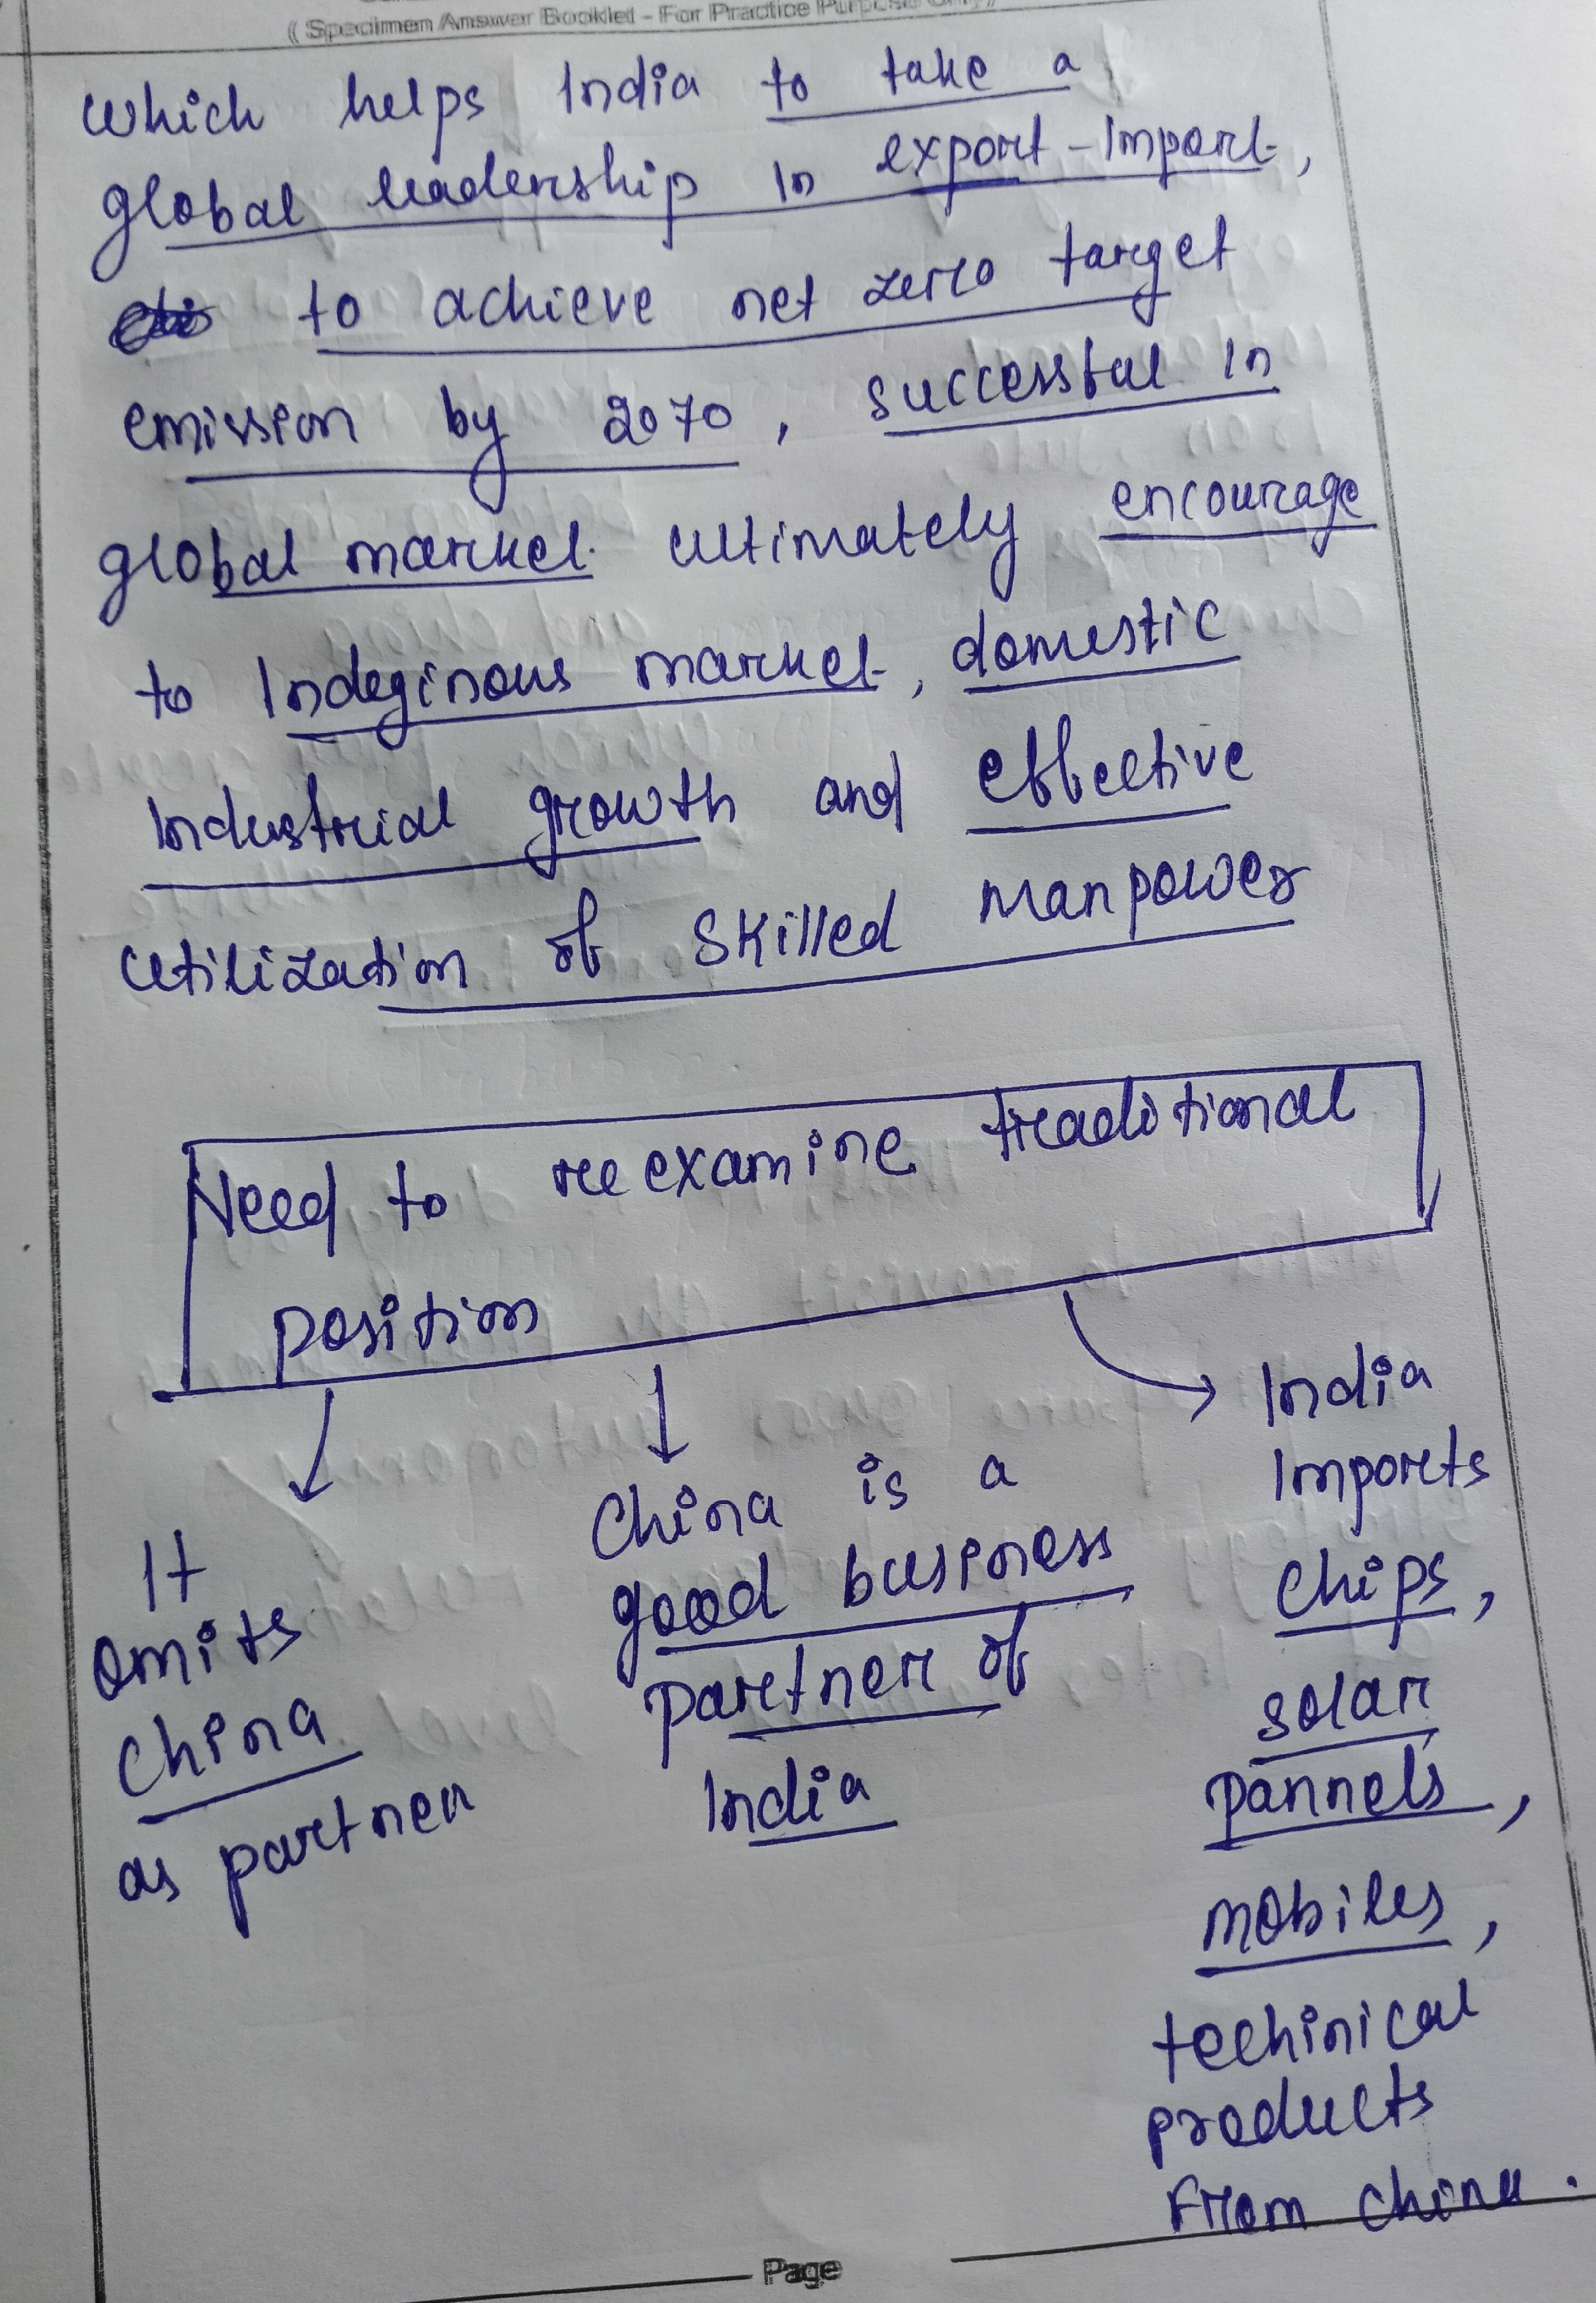 (Specimen Answer Booklet - For Practice Purpose Only)
which helps India to take a
global leadership in export-Import,
to achieve net zero target
emission by 2070, successful in
global market. ultimately encourage
to Indeginous market, domestic
Industrial growth and effective
utilization of skilled manpower
Need to re examine traditional
position
It
omits
China
as partner
China is a
good business
partner of
India
India
Imports
chips,
solar
pannels,
mobiles,
techinical
products
From china.
Page